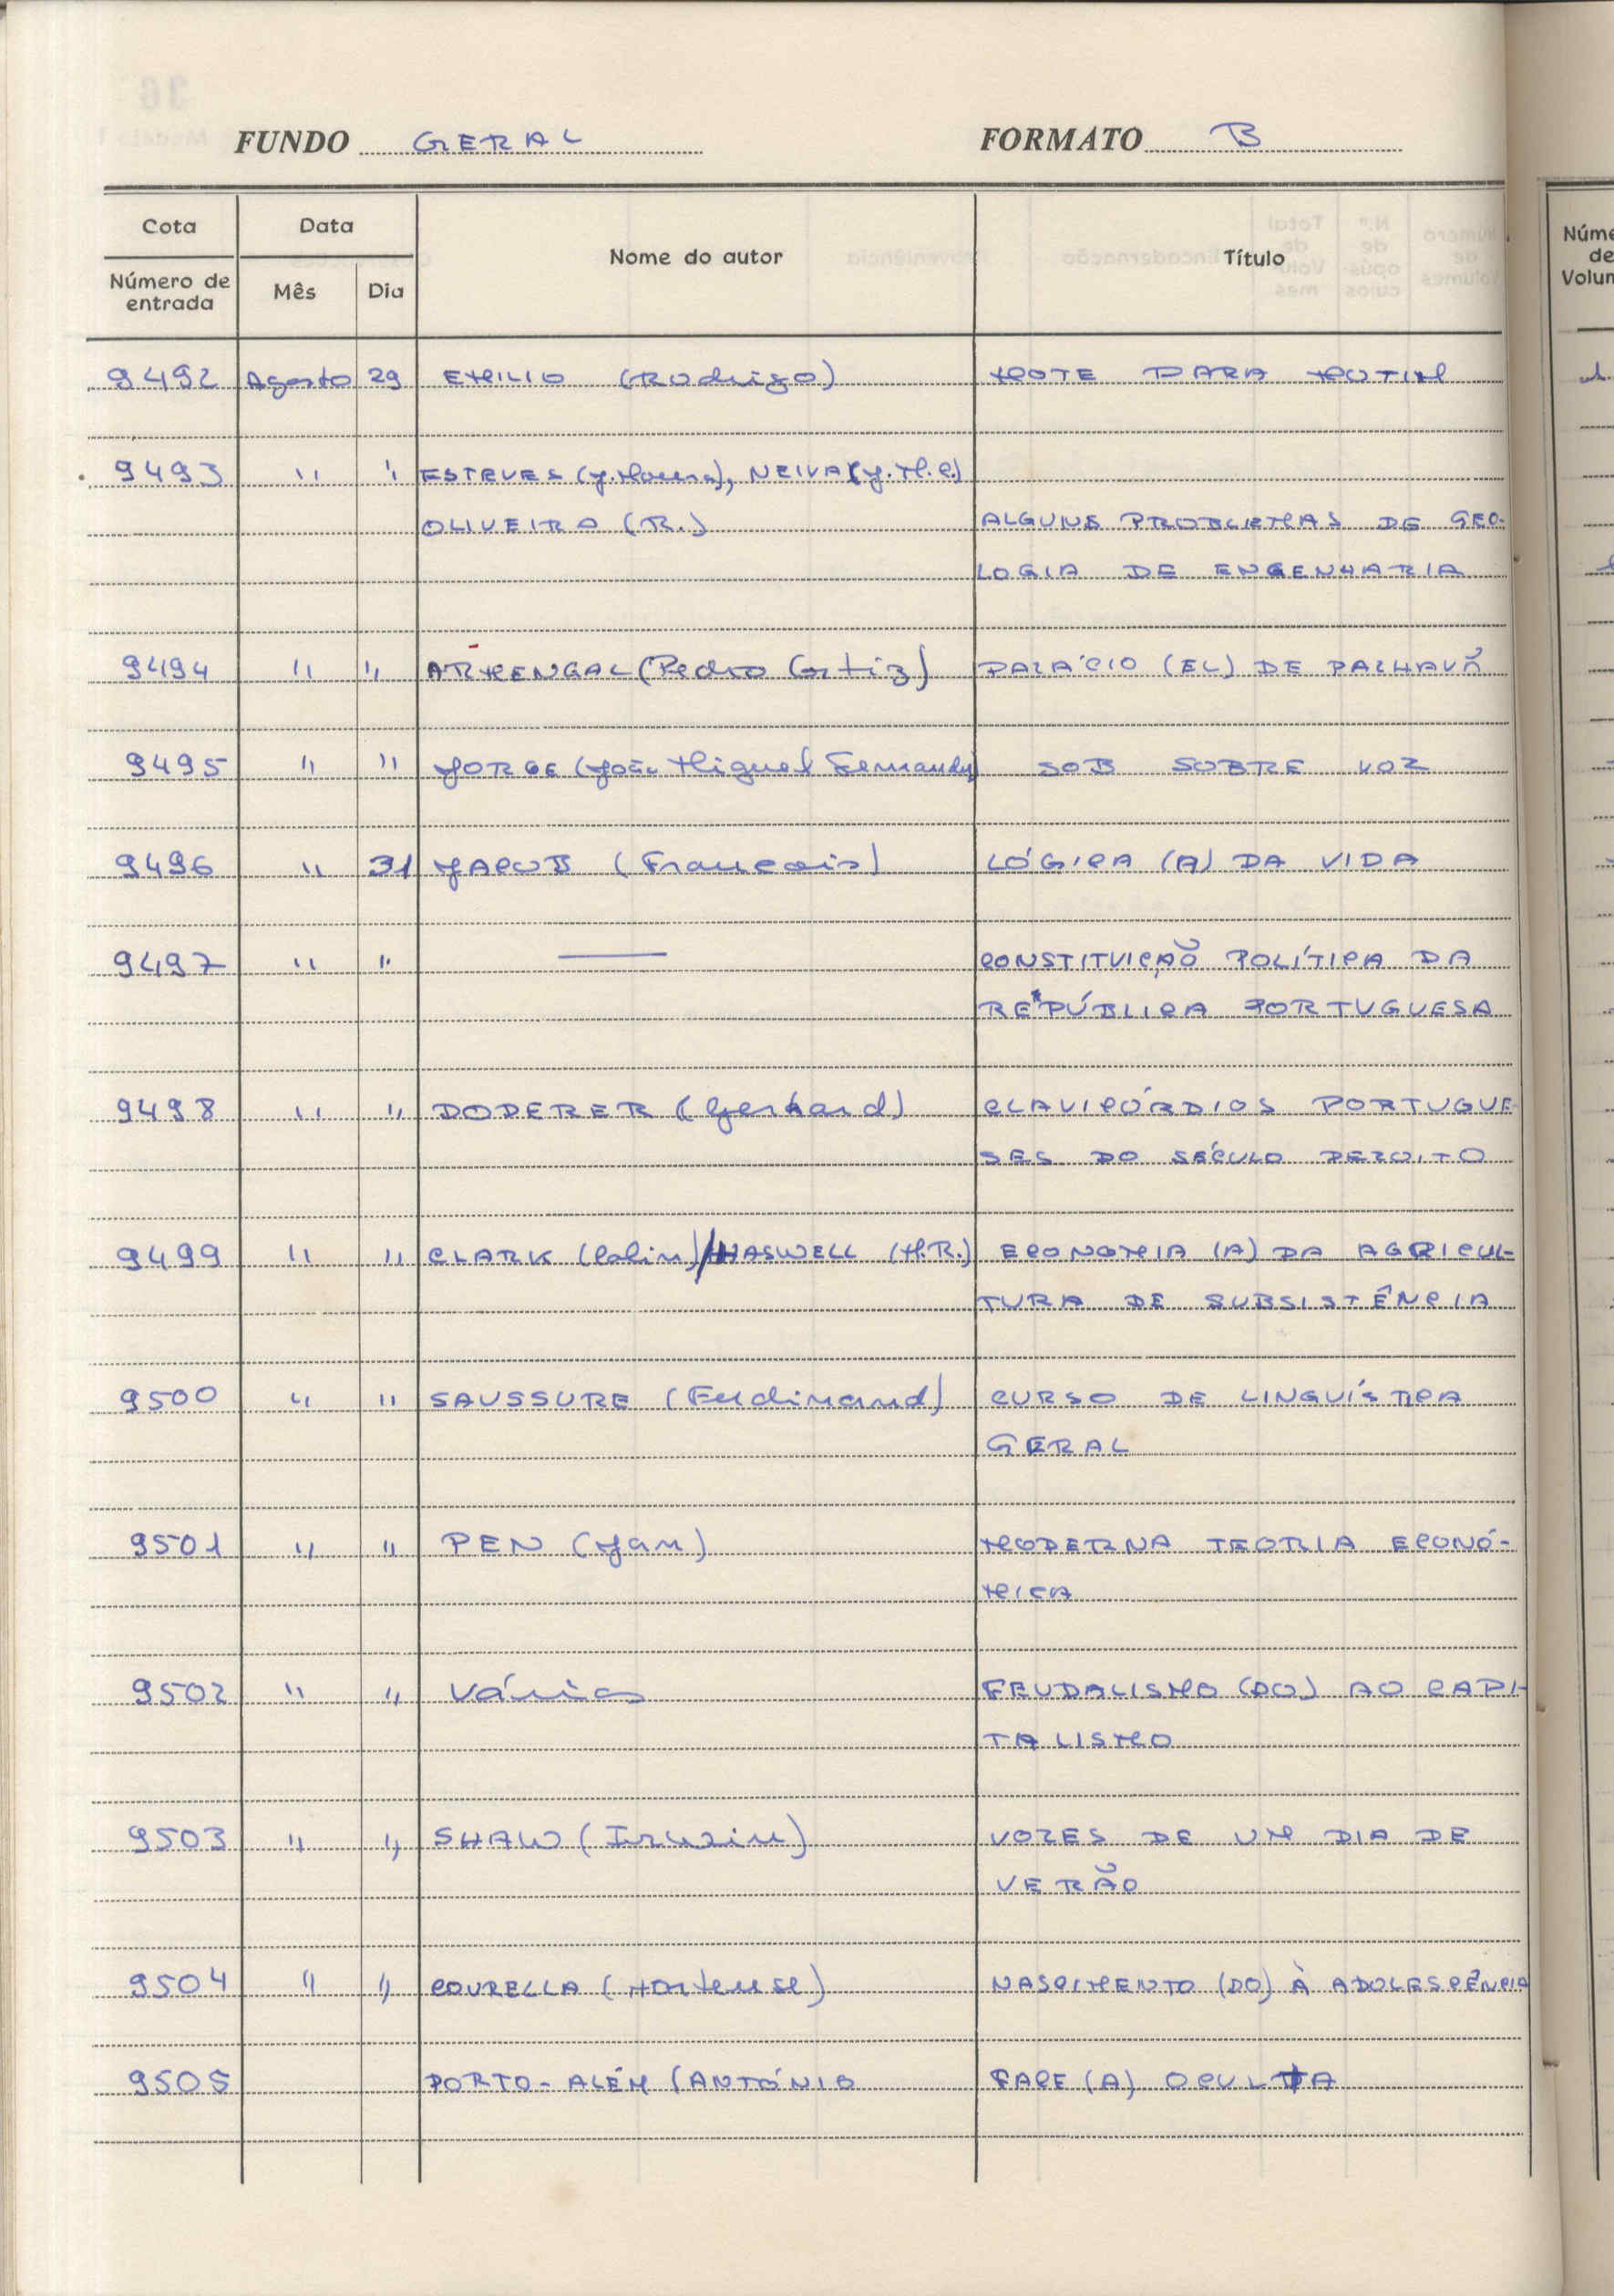 FUNDO GERAL FORMATO B
Cota Data Nome do autor Título
Número de entrada Mês Dia
Núme
de
Volum
9492 Agosto 29 EMILIO (Rodrigo) MOTE PARA MOTIM
9493 " " ESTEVES (J. Moura), NEIVA (J. M. C.)
OLIVEIRA (R.) ALGUNS PROBLEMAS DE GEO-
LOGIA DE ENGENHARIA
9494 " " ARMENGAL (Pedro Cortiz) PALÁCIO (EL) DE PALHAVÃ
9495 " " JORGE (João Miguel Fernandes) SOB SOBRE VOZ
9496 " 31 JACOB (Francois) LÓGICA (A) DA VIDA
9497 " " — CONSTITUIÇÃO POLÍTICA DA
REPÚBLICA PORTUGUESA
9498 " " DODERER (Gerhard) CLAVICÓRDIOS PORTUGUE
SES DO SÉCULO DEZOITO
9499 " " CLARK (Colin)/HASWELL (M.R.) ECONOMIA (A) DA AGRICUL-
TURA DE SUBSISTÊNCIA
9500 " " SAUSSURE (Ferdinand) CURSO DE LINGUÍSTICA
GERAL
9501 " " PEN (Jan) MODERNA TEORIA ECONÓ-
MICA
9502 " " Vários FEUDALISMO (DO) AO CAPI-
TALISMO
9503 " " SHAW (Irwin) VOZES DE UM DIA DE
VERÃO
9504 " " COURELLA (Hortense) NASCIMENTO (DO) À ADOLESCÊNCIA
9505 PORTO-ALÉM (ANTÓNIO FACE (A) OCULTA